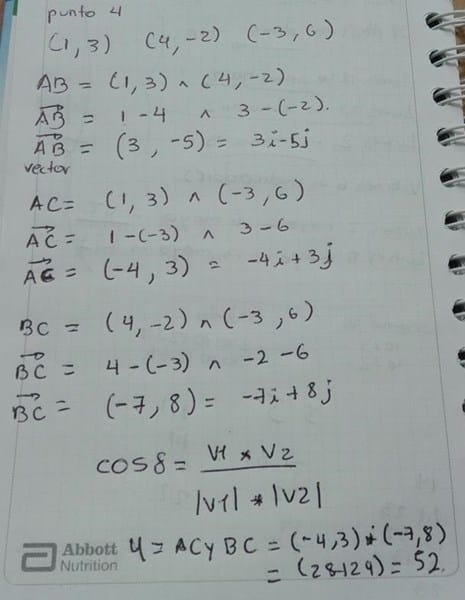 punto 4
(1, 3) (4, -2) (-3, 6)
AB = (1, 3) ^ (4, -2)
AB = 1 - 4 ^ 3 - (-2).
AB = (3, -5) = 3i - 5j
vector
AC = (1, 3) ^ (-3, 6)
AC = 1 - (-3) ^ 3 - 6
AC = (-4, 3) = -4i + 3j
BC = (4, -2) ^ (-3, 6)
BC = 4 - (-3) ^ -2 - 6
BC = (-7, 8) = -7i + 8j
cos δ = V1 * V2
|V1| * |V2|
4 = AC y BC = (-4, 3) * (-7, 8)
= (28+24) = 52.
Abbott
Nutrition